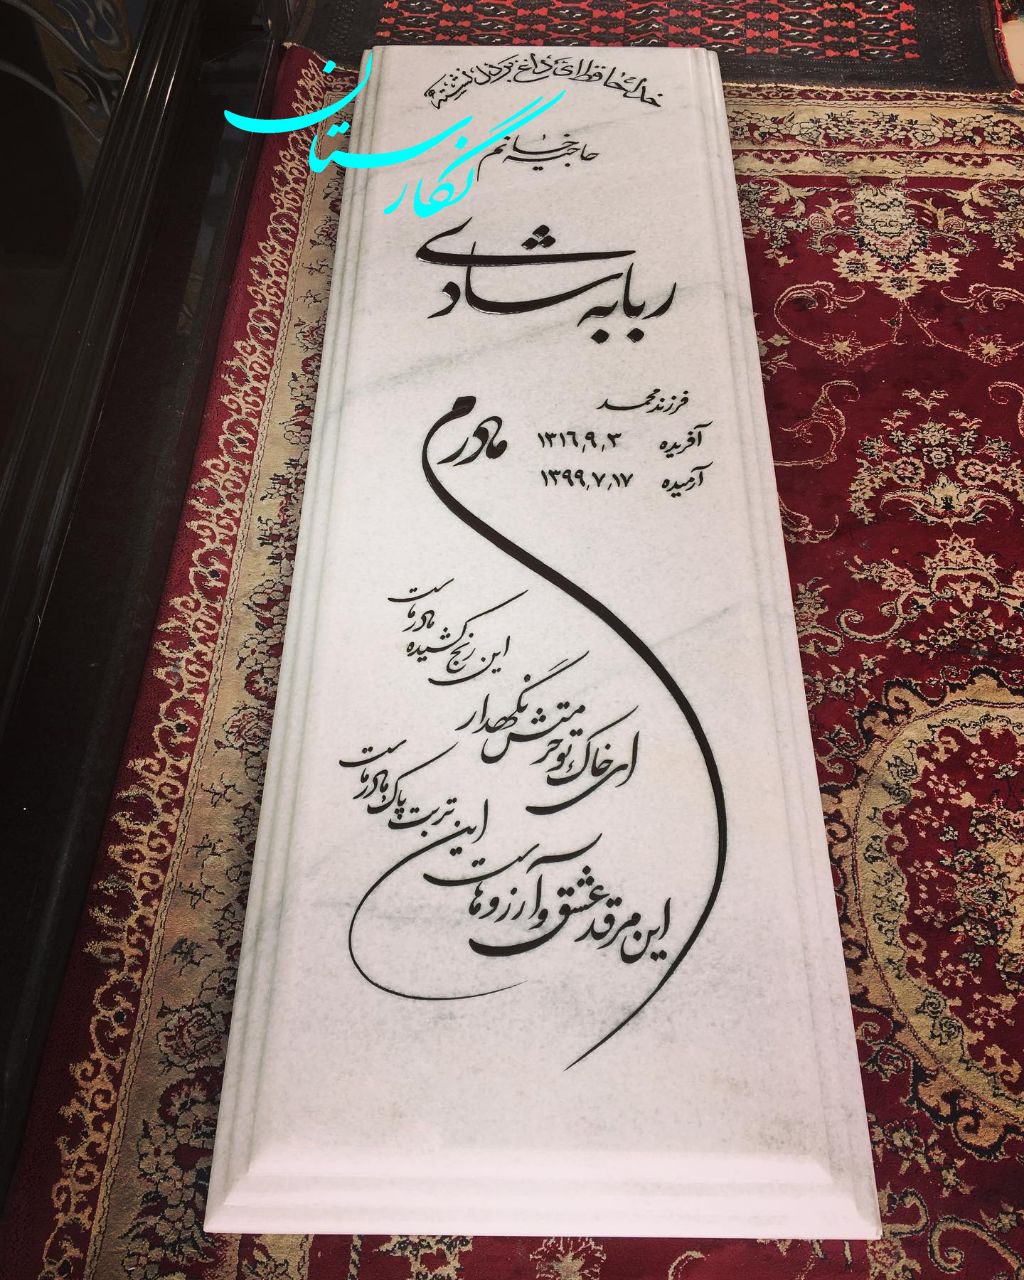 خداحافظ ای داغ بر دل نشسته
نگارستان
حاجیه خانم
ربابه شادی
فرزند محمد
آفریده ۱۳۱۶٫۹٫۳
آرمیده ۱۳۹۹٫۷٫۱۷
مادرم
این رنج کشیده مادر ماست
ای خاک تو حرمتش نگهدار
این تربت پاک مادر ماست
این مرقد عشق و آرزوهاست